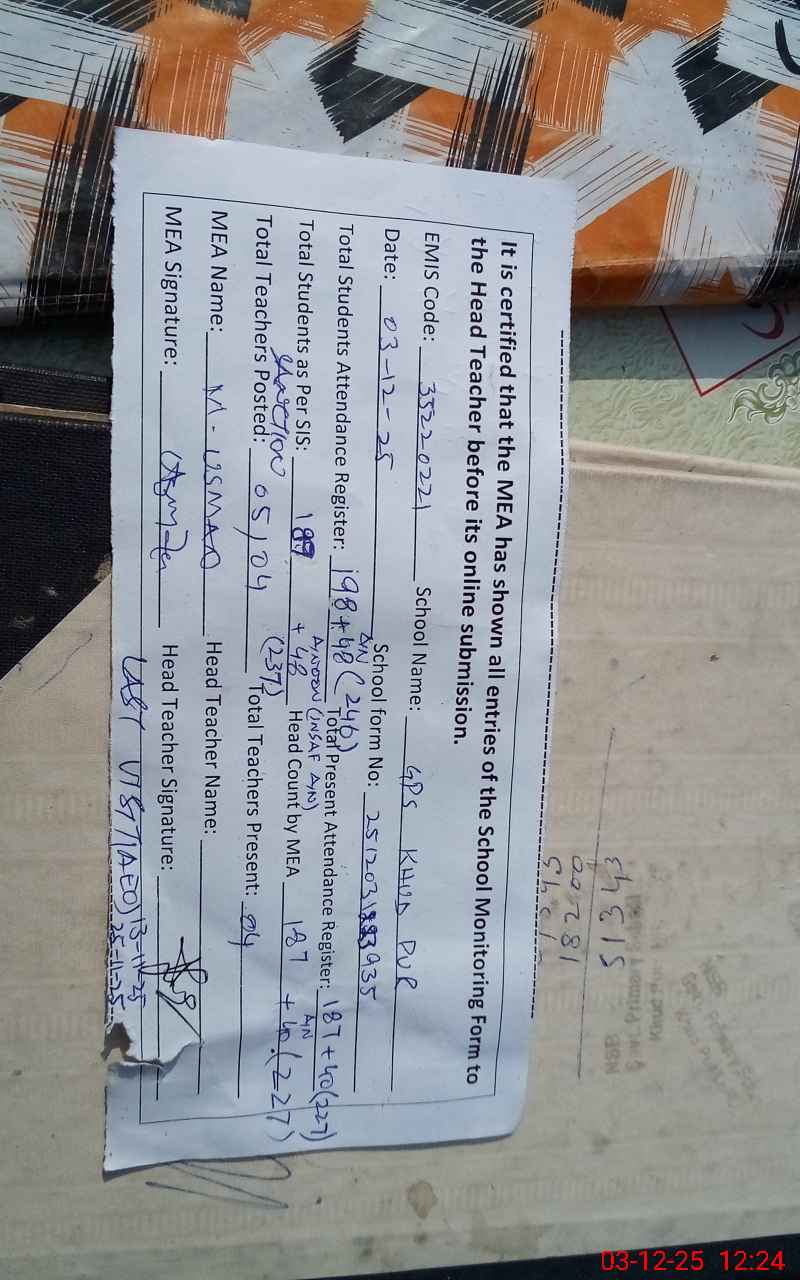 It is certified that the MEA has shown all entries of the School Monitoring Form to
the Head Teacher before its online submission.
EMIS Code: 35220221 School Name: GPS KHUD PUR
Date: 03-12-25 School form No: 25120319935
A/N
Total Students Attendance Register: 198+48 (246) Total Present Attendance Register: 187+40(227)
A/NOON (INSAF A/N) A/N
Total Students as Per SIS: 189 + 48 (237) Head Count by MEA 187 + 40 (227)
SANCTION
Total Teachers Posted: 05/04 Total Teachers Present: 04
MEA Name: M. USMAN Head Teacher Name:
MEA Signature: Head Teacher Signature:
LAST VISIT (AEO) 13-11-25
25-11-25
51343
182700
03-12-25 12:24